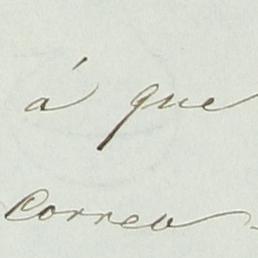 á que
correo